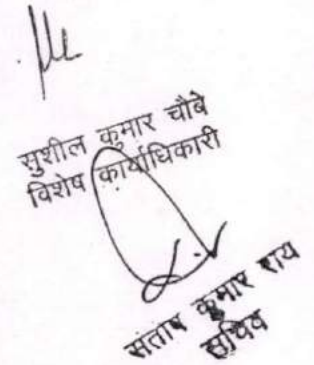 सुशील कुमार चौबे
विशेष कार्याधिकारी
सताष कुमार राय
सचिव